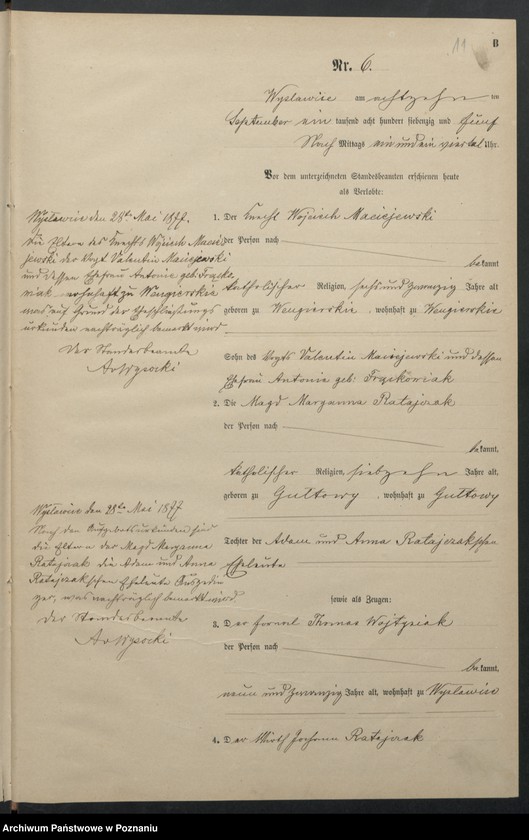 11
B
Nr. 6.
Wyslawice am achtzehn ten
September ein tausend acht hundert siebenzig und fünf
Nach Mittags ein und ein viertel Uhr.
Vor dem unterzeichneten Standesbeamten erschienen heute
als Verlobte:
1. Der Knecht Wojciech Maciejewski
der Person nach
bekannt
katholischer Religion, sechs und zwanzig Jahre alt
geboren zu Wengierskie, wohnhaft zu Wengierskie
Sohn des Vogts Valentin Maciejewski und dessen
Ehefrau Antonie geb: Frąckowiak
2. Die Magd Maryanna Ratajczak
der Person nach
bekannt,
katholischer Religion, siebzehn Jahre alt,
geboren zu Gultowy, wohnhaft zu Gultowy
Tochter der Adam und Anna Ratajczakschen
Eheleute
sowie als Zeugen:
3. Der Fornal Thomas Wojtysiak
der Person nach
bekannt,
neun und zwanzig Jahre alt, wohnhaft zu Wyslawice
4. Der Wirth Johann Ratajczak
Wyslawice den 28ten Mai 1877.
Die Eltern des Knechts Wojciech Macie
jewski der Vogt Valentin Maciejewski
und dessen Ehefrau Antonie geb. Frącko
wiak wohnhaft zu Wengierskie
was auf Grund der Eheschließungs
urkunden nachträglich bemerkt wird.
Der Standesbeamte
Wysocki
Wyslawice den 28ten Mai 1877
Nach den Aufgebotsurkunden sind
die Eltern der Magd Maryanna
Ratajczak die Adam und Anna
Ratajczakschen Eheleute Ausgedin
ger, was nachträglich bemerkt wird
Der Standesbeamte
Wysocki
Archiwum Państwowe w Poznaniu